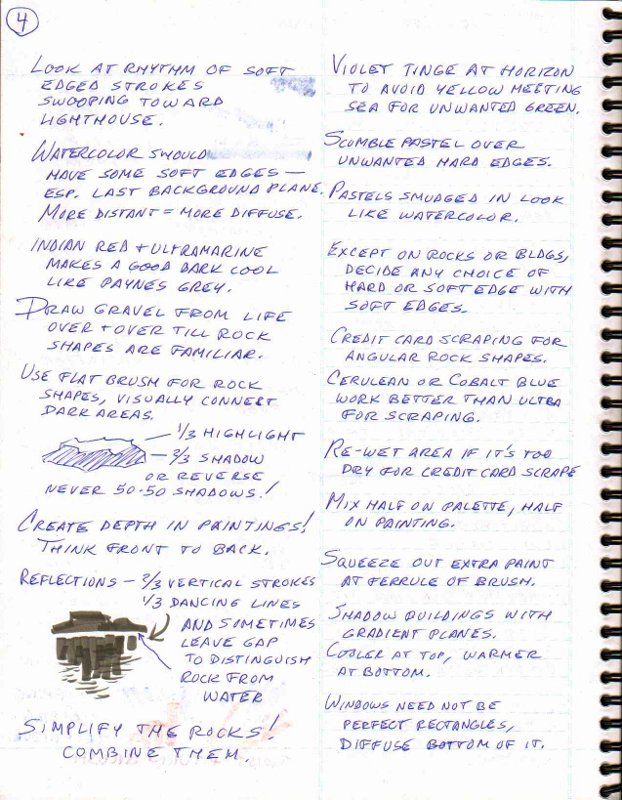 4
LOOK AT RHYTHM OF SOFT
EDGED STROKES
SWOOPING TOWARD
LIGHTHOUSE.
WATERCOLOR SHOULD
HAVE SOME SOFT EDGES —
ESP. LAST BACKGROUND PLANE.
MORE DISTANT = MORE DIFFUSE.
INDIAN RED + ULTRAMARINE
MAKES A GOOD DARK COOL
LIKE PAYNES GREY.
DRAW GRAVEL FROM LIFE
OVER + OVER TILL ROCK
SHAPES ARE FAMILIAR.
USE FLAT BRUSH FOR ROCK
SHAPES, VISUALLY CONNECT
DARK AREAS.
1/3 HIGHLIGHT
2/3 SHADOW
OR REVERSE
NEVER 50-50 SHADOWS!
CREATE DEPTH IN PAINTINGS!
THINK FRONT TO BACK.
REFLECTIONS — 2/3 VERTICAL STROKES
1/3 DANCING LINES
AND SOMETIMES
LEAVE GAP
TO DISTINGUISH
ROCK FROM
WATER
SIMPLIFY THE ROCKS!
COMBINE THEM.
VIOLET TINGE AT HORIZON
TO AVOID YELLOW MEETING
SEA FOR UNWANTED GREEN.
SCUMBLE PASTEL OVER
UNWANTED HARD EDGES.
PASTELS SMUDGED IN LOOK
LIKE WATERCOLOR.
EXCEPT ON ROCKS OR BLDGS,
DECIDE ANY CHOICE OF
HARD OR SOFT EDGE WITH
SOFT EDGES.
CREDIT CARD SCRAPING FOR
ANGULAR ROCK SHAPES.
CERULEAN OR COBALT BLUE
WORK BETTER THAN ULTRA
FOR SCRAPING.
RE-WET AREA IF IT'S TOO
DRY FOR CREDIT CARD SCRAPE
MIX HALF ON PALETTE, HALF
ON PAINTING.
SQUEEZE OUT EXTRA PAINT
AT FERRULE OF BRUSH.
SHADOW BUILDINGS WITH
GRADIENT PLANES.
COOLER AT TOP, WARMER
AT BOTTOM.
WINDOWS NEED NOT BE
PERFECT RECTANGLES,
DIFFUSE BOTTOM OF IT.